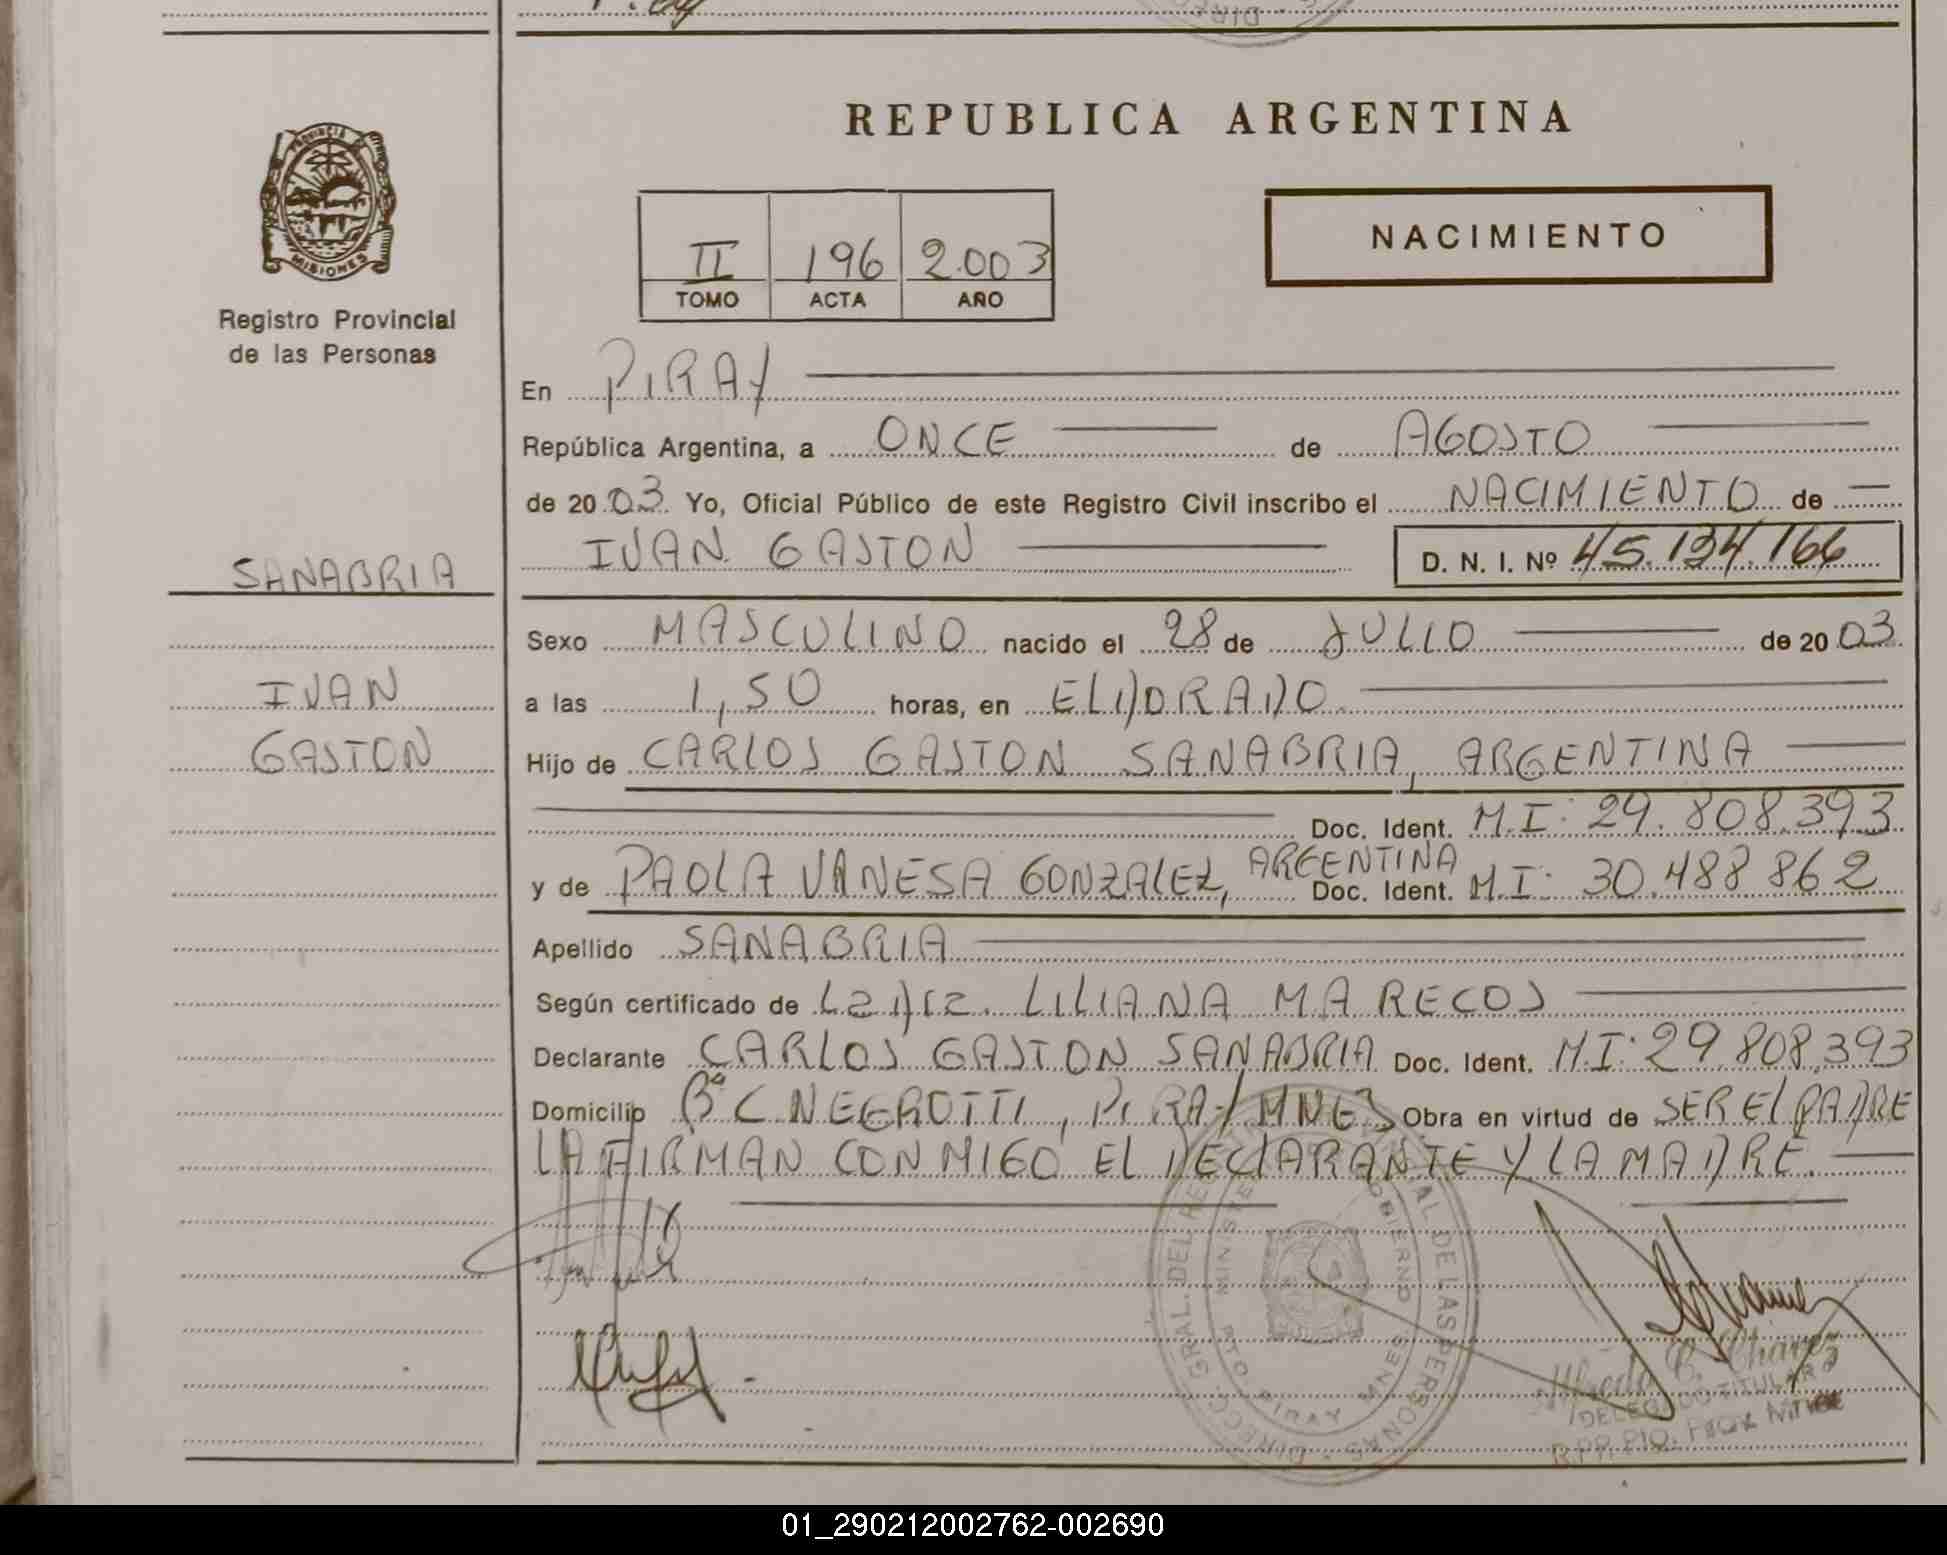 REPUBLICA ARGENTINA
PROVINCIA
MISIONES
Registro Provincial
de las Personas
II 196 2.003
TOMO ACTA AÑO
NACIMIENTO
En PIRAY
República Argentina, a ONCE de AGOSTO
de 20 03 Yo, Oficial Público de este Registro Civil inscribo el NACIMIENTO de
IVAN GASTON D. N. I. Nº 45.134.166
SANABRIA
IVAN
GASTON
Sexo MASCULINO nacido el 28 de JULIO de 20 03
a las 1,50 horas, en ELDORADO
Hijo de CARLOS GASTON SANABRIA, ARGENTINA
Doc. Ident. M.I: 29.808.393
y de PAOLA VANESA GONZALEZ, ARGENTINA Doc. Ident. M.I: 30.488 862
Apellido SANABRIA
Según certificado de LILIANA MARECOS
Declarante CARLOS GASTON SANABRIA Doc. Ident. M.I: 29.808.393
Domicilio Bº C. NEGROTTI, PIRAY MNES Obra en virtud de SER EL PADRE
LA FIRMAN CONMIGO EL DECLARANTE Y LA MADRE.
DIRECC. GRAL. DEL REGISTRO PROVINCIAL DE LAS PERSONAS
MINISTERIO GOBIERNO
PTO. PIRAY MNES
Alfredo C. Chávez
DELEGADO TITULAR
01_290212002762-002690